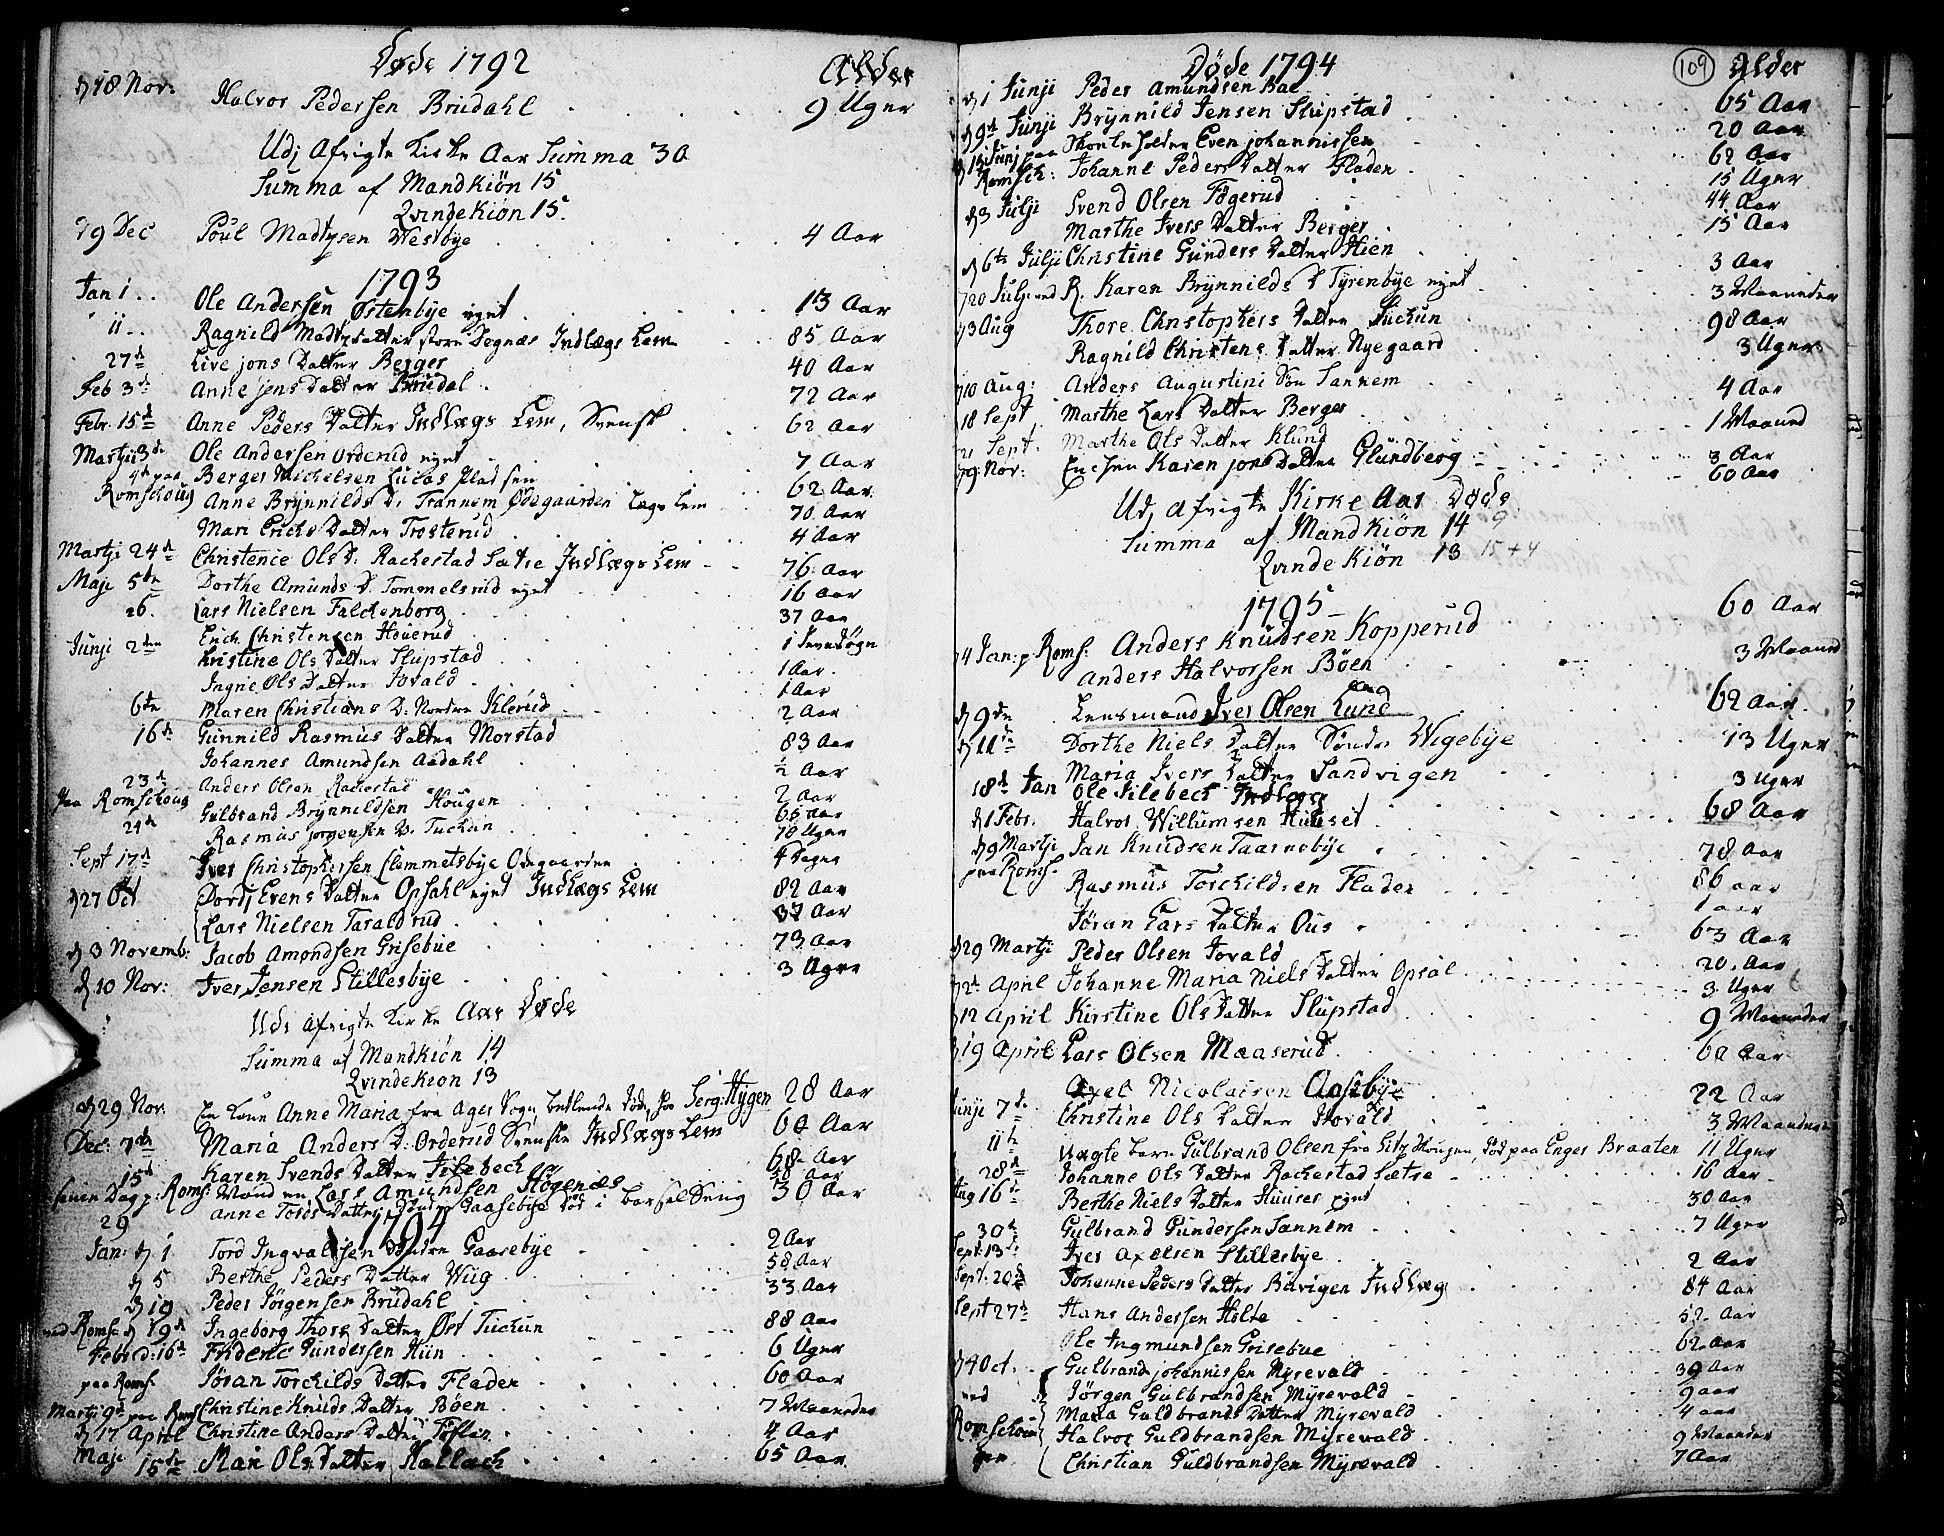 Døde 1792 Alder
d 18 Nov: Halvor Pedersen Brudahl 9 Uger
Udj Afvigte Kirke Aar Summa 30
Summa af Mandkiön 15
Qvindekiön 15.
d 9 Dec Poul Madtzsen Westbye 4 Aar
1793
Jan 1 Ole Andersen Østenbye eynt 13 Aar
11 Ragnild Madtzdatter store Degnæs Indlægs Lem 85 Aar
27d Live jons Datter Berger 40 Aar
Feb 3de Anne Jens Datter Brudal 72 Aar
Febr. 15d Anne Peders Datter Indlægs Lem, Svensk 62 Aar
Martji 3de Ole Andersen Orderud eynt 7 Aar
4de paa Berger Michelsen Lucas Pladsen 62 Aar
Romschoug Anne Brÿnnilds D. Trannem Ødegaarden Lægs Lem 70 Aar
Mari Erichs Datter Trosterud 4 Aar
Martji 24d Christence Ols D. Rachestad Sætre Indlægs Lem 76 Aar
Maje 5te Dorthe Amunds D. Tommelsrud eynt 16 Aar
26. Lars Nielsen Falchenborg 37 Aar
Erich Christensen Houerud 1
Junji 2den Kristine Ols Datter Slupstad 1 Aar.
Ingrie Ols Datter Jovald 1 Aar
6te Maren Christians D. Nordre Klerud 2 Aar
16de Gunnild Rasmus Datter Morstad 83 Aar
Johannes Amundsen Aadahl ½ Aar
23d Anders Olsen Rachestad 2 Aar
Paa Romschoug Gulbrand Brÿnnildsen Hougen 65 Aar
24d Rasmus jorgensen D. Tuchun 18 Uger
Sept 17d Iver Christophersen Clemmetsbye Odegaarden 4 Dagne
d 27 Oct Dordj Evens Datter Opsahl eynt Indlægs Lem 82 Aar
Lars Nielsen Taraldrud 37 Aar
d 3 Novemb: Jacob Amondsen Grisebue 73 Aar
d 10 Nov: Iver Jensen Stillesbye 3 Uger
Udi Afvigte Kirke Aar Døde
Summa af Mandkiön 14
Qvindekiön 13
d 29 Nov. En Kone Anne Maria fra Ager Sogn betlende døde hos Serg: Hÿgen 28 Aar
Dec: 7de Maria Anders D. Orderud Svenske Indlægs Lem 60 Aar
15d Karen Svends Datter Silebech 68 Aar
samme Dag p: Roms: Manden Lars Amundsen Høgenæs Aar
29 Anne Tords Datter Søndre Gaasebye død i Barsel Seng 30 Aar
1794
Jan: d 1 Tord Ingvaldsen Søndre Gaasebye 2 Aar
d 5 Berthe Peders Datter Wiig 58 Aar
d 19 Peder Jörgensen Brudahl 33 Aar
ved Roms: d 19d Ingeborg Thors Datter Øst Tuchun 88 Aar
Febr d: 16de Frideric Gundersen Hiin 6 Uger
paa Roms. Joran Torchilds Datter Fladen 60 Aar
Martji 9de paa Roms Christine Knuds Datter Böen 7 Maaneder
d 17 April Christine Anders Datter Töften 4 Aar
Maje 15de Mari Ols Datter Kallach 65 Aar
Döde 1794 109 Alder
d 1 Junji Peder Amundsen Bae 65 Aar
d 9d Junji Brÿnnild Jensen Slupstad 20 Aar
d 15 Junj paa Even johannissen 62 Aar
Romsch: Johanne Peders Datter Fladen 15 Uger
d 3 Julji Svend Olsen Fögerud 44 Aar
Marthe Ivers Datter Berger 15 Aar
d 6te Julji Christine Gunders Datter Hien 3 Aar
d 20 Julj: ved R. Karen Brÿnnilds D Tÿrenbye eynt 3 Maaneder
d 3 Aug Thore Christophers Datter Tuchun 98 Aar
Ragnild Christens Datter Nyegaard 3 Uger
d 10 Aug: Anders Augustini Sön Sannem 4 Aar
18 Sept Marthe Lars Datter Berger 1 Maaned
21 Sept. Marthe Ols Datter Klund 3 Aar
d 9 Nov: Enchen Karen jons Datter Glundberg 60 Aar
Udj Afvigte Kirke Aar Døde
Summa af Mandkiön 14
Qvinde Kiön 13 15+4
1795
d 4 Jan: p. Roms: Anders Knudsen Kopperud 60 Aar
Anders Halvorsen Böen 3 Maaned
d 9de Lensmand Iver Olsen Lund 62 Aar
d 11te Dorthe Niels Datter Söndre Wigebye 13 Uger
Maria Ivers Datter Sandvigen 3 Uger
18d Jan Ole Silebech Indlægs 68 Aar
d 1 Febr. Halvor Willumsen Huuset
d 9 Martji Jan Knudsen Taarnebye 78 Aar
paa Roms. Rasmus Torchildsen Fladen 86 aar
Jöran Lars Datter Ous 1 aar
d 29 Martji Peder Olsen Jovald 63 Aar
d 2d April Johanne Maria Niels Datter Opsal 20 Aar
3 Uger
d 12 April Kirstine Ols Datter Slupstad 9 Maaneder
d 19 April Lars Olsen Maaserud 60 Aar
Axel Nicolaisen Aasebye 22 Aar
Junji 7de Christine Ols Datter Hovald 3 Maaneder
11te Uægte barn Gulbrand Olsen fra Sitz Hougen, død paa Enger Braaten 11 Uger
28d Johanne Ols Datter Rachestad Sætre 16 Aar
Aug 16d Berthe Niels Datter Huuser eynt 30 Aar
30d Gulbrand Gundersen Sannem 7 Uger
Sept: 13de Iver Axelsen Stillesbye 2 Aar
Sept. 20d Johanne Peders Datter Buvigen Indlæg 84 Aar
Sept 27d Hans Andersen Holte 52 Aar
Ole Ingmundsen Grisebue 62 Aar
d 4 Oct. Gulbrand johannissen Myrevald 39 Aar
ved Jörgen Gulbrandsen Myrevald 9 aar
Maria Guldbrands Datter Myrevald 4 aar
Romschou Halvor Guldbrandsen Myrevald 9 Maaneder
gen Christian Guldbrandsen Myrevald 7 Aar